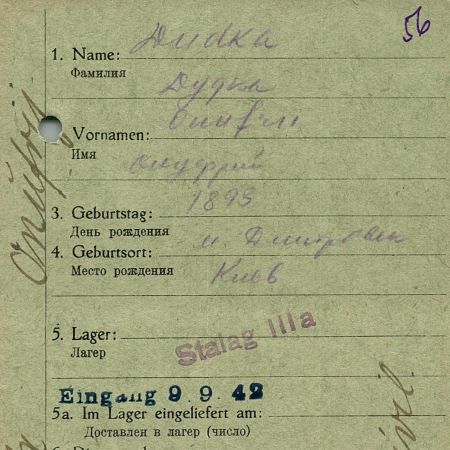 56
Дидка
1. Name:
Фамилия
Дудка
Vornamen:
Имя
Онуфрий
3. Geburtstag: 1893
День рождения
4. Geburtsort: м. Дмитровск
Место рождения Киев
5. Lager: Stalag IIIa
Лагер
Eingang 9. 9. 42
5a. Im Lager eingeliefert am:
Доставлен в лагер (число)